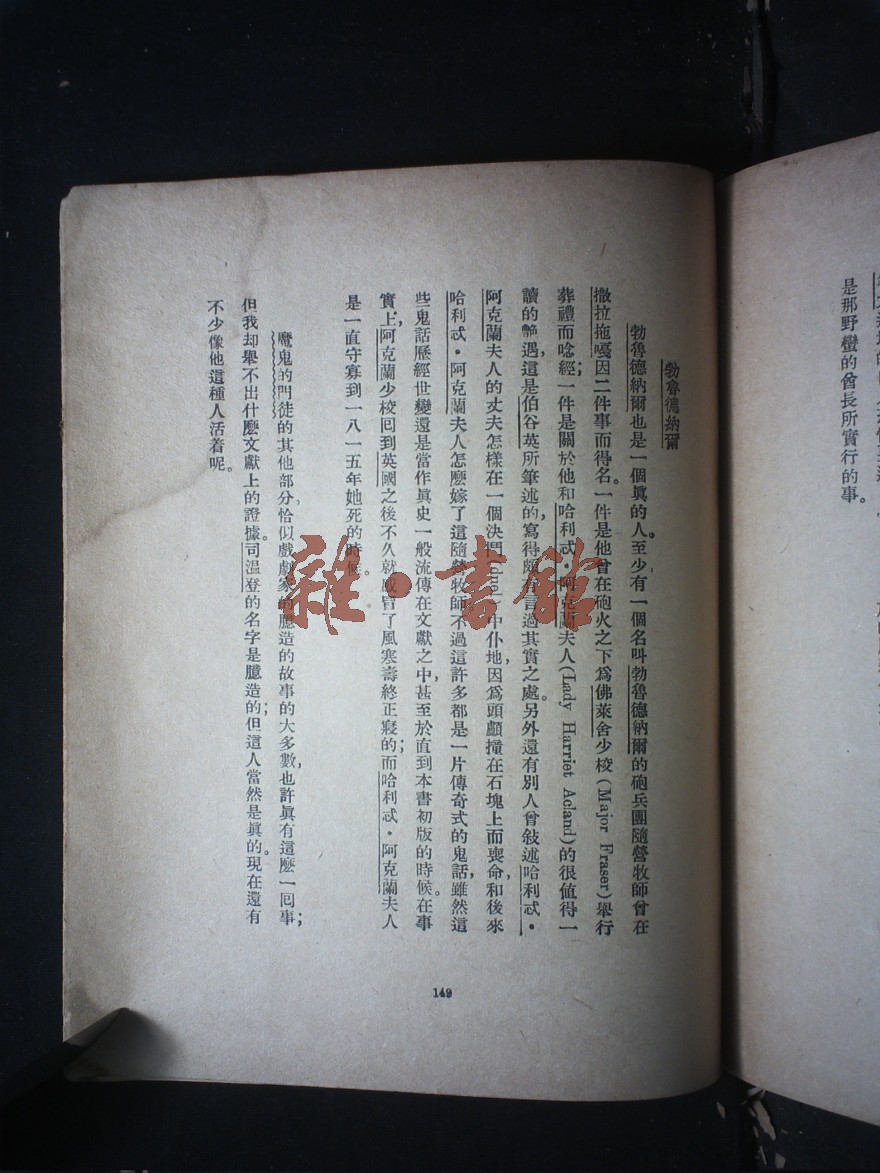 是那野蠻的酋長所實行的事。
勃魯德納爾
勃魯德納爾也是一個眞的人。至少有一個名叫勃魯德納爾的砲兵團隨營牧師曾在
撒拉拖嘎因二件事而得名。一件是他曾在砲火之下爲佛萊舍少校(Major Fraser)舉行
葬禮而唸經;一件是關於他和哈利忒·阿克蘭夫人(Lady Harriet Acland)的很値得一
讀的艶遇,這是伯谷英所筆述的,寫得頗有言過其實之處。另外還有別人曾敍述哈利忒·
阿克蘭夫人的丈夫怎樣在一個決鬥(duel)中仆地,因爲頭顱撞在石塊上而喪命,和後來
哈利忒·阿克蘭夫人怎麽嫁了這隨營牧師。不過這許多都是一片傳奇式的鬼話,雖然這
些鬼話歷經世變還是當作眞史一般流傳在文獻之中,甚至於直到本書初版的時候。在事
實上,阿克蘭少校回到英國之後不久就感冒了風寒壽終正寢的;而哈利忒·阿克蘭夫人
是一直守寡到一八一五年她死的時候。
魔鬼的門徒的其他部分,恰似戲劇家的臆造的故事的大多數,也許眞有這麽一回事;
但我却舉不出什麽文獻上的證據。司溫登的名字是臆造的;但這人當然是眞的。現在還有
不少像他這種人活着呢。
149
雜·書館